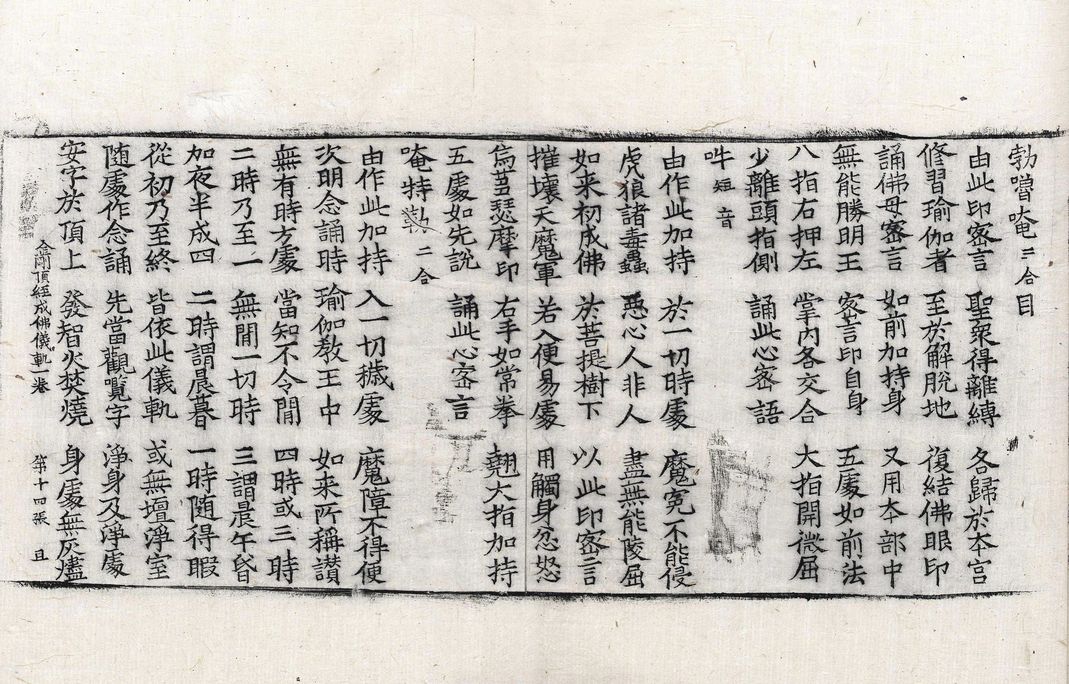 勃嚂唵三合目
由此印密言 聖衆得離縛 各歸於本宮
修習瑜伽者 至於解脫地 復結佛眼印
誦佛母密言 如前加持身 又用本部中
無能勝明王 密言印自身 五處如前法
八指右押左 掌内各交合 大指開微屈
少離頭指側 誦此心密語
吽短音
由作此加持 於一切時處 魔冤不能侵
虎狼諸毒蟲 惡心人非人 盡無能陵屈
如来初成佛 於菩提樹下 以此印密言
摧壞天魔軍 若入便易處 用觸身忿怒
烏芻瑟摩印 右手如常拳 翹大指加持
五處如先說 誦此心密言
唵特勃二合
由作此加持 入一切穢處 魔障不得便
次明念誦時 瑜伽教王中 如来所稱讃
無有時方處 當知不令間 四時或三時
二時乃至一 無間一切時 三謂晨午昏
加夜半成四 二時謂晨暮 一時随得暇
從初乃至終 皆依此儀軌 或無壇淨室
随處作念誦 先當觀覽字 淨身及淨處
安字於頂上 發智火焚燒 身處無灰燼
金剛頂經成佛儀軌一卷 第十四張 且